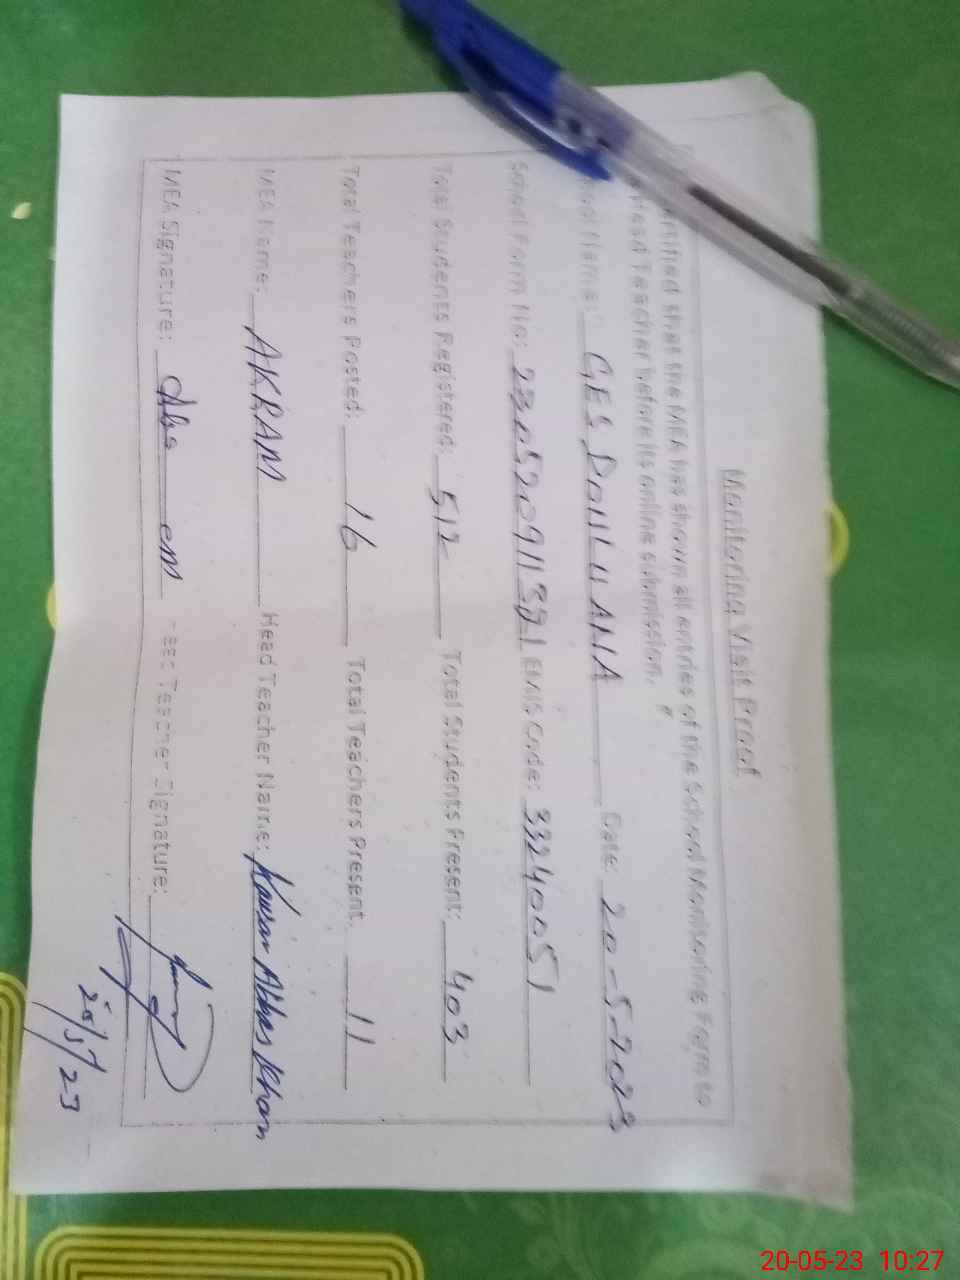 Monitoring Visit Proof
that the MEA has shown all entries of the School Monitoring Form to
Head Teacher before its online submission.
Name: GES DAULUANA Date: 20-5-2023
School Form No: EMIS Code: 33240051
Total Students Registered: 512 Total Students Present: 403
Total Teachers Posted: 16 Total Teachers Present: 11
MEA Name: AKRAM Head Teacher Name: Kausar Abbas Khan
MEA Signature: Head Teacher Signature:
20/5/23
20-05-23 10:27